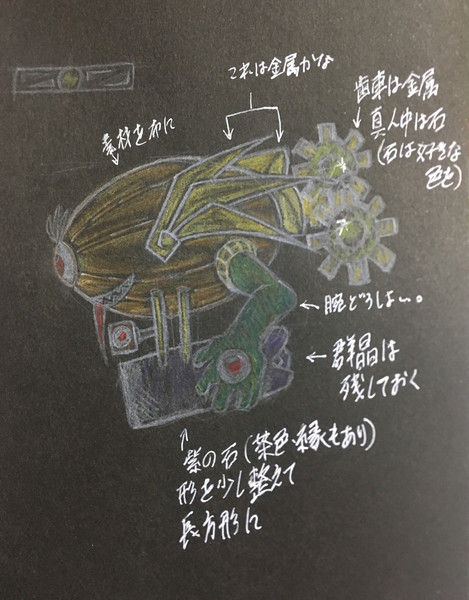 これは金属かな
歯車は金属
真ん中は石
(石は好きな
色を)
素材を布に
腕どうしよい。
群晶は
残しておく
紫の石(茶色・縁もあり)
形を少し整えて
長方形に